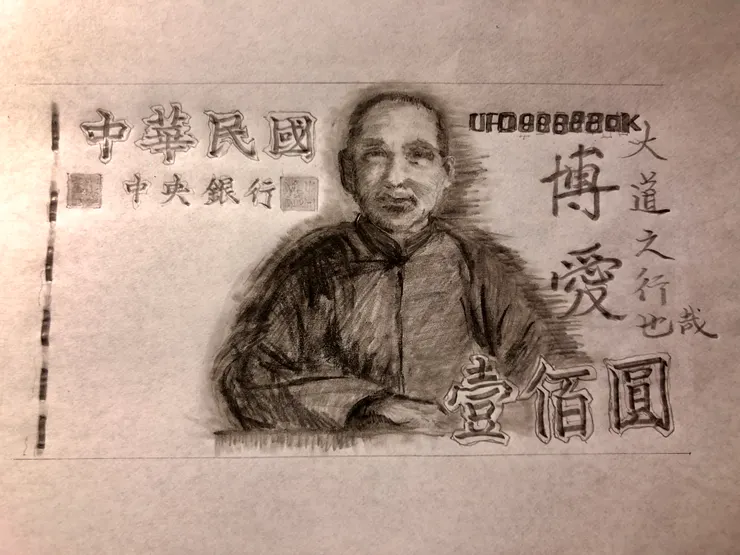 中華民國
中央銀行
UFO88888OK
大道之行也哉
博愛
壹佰圓